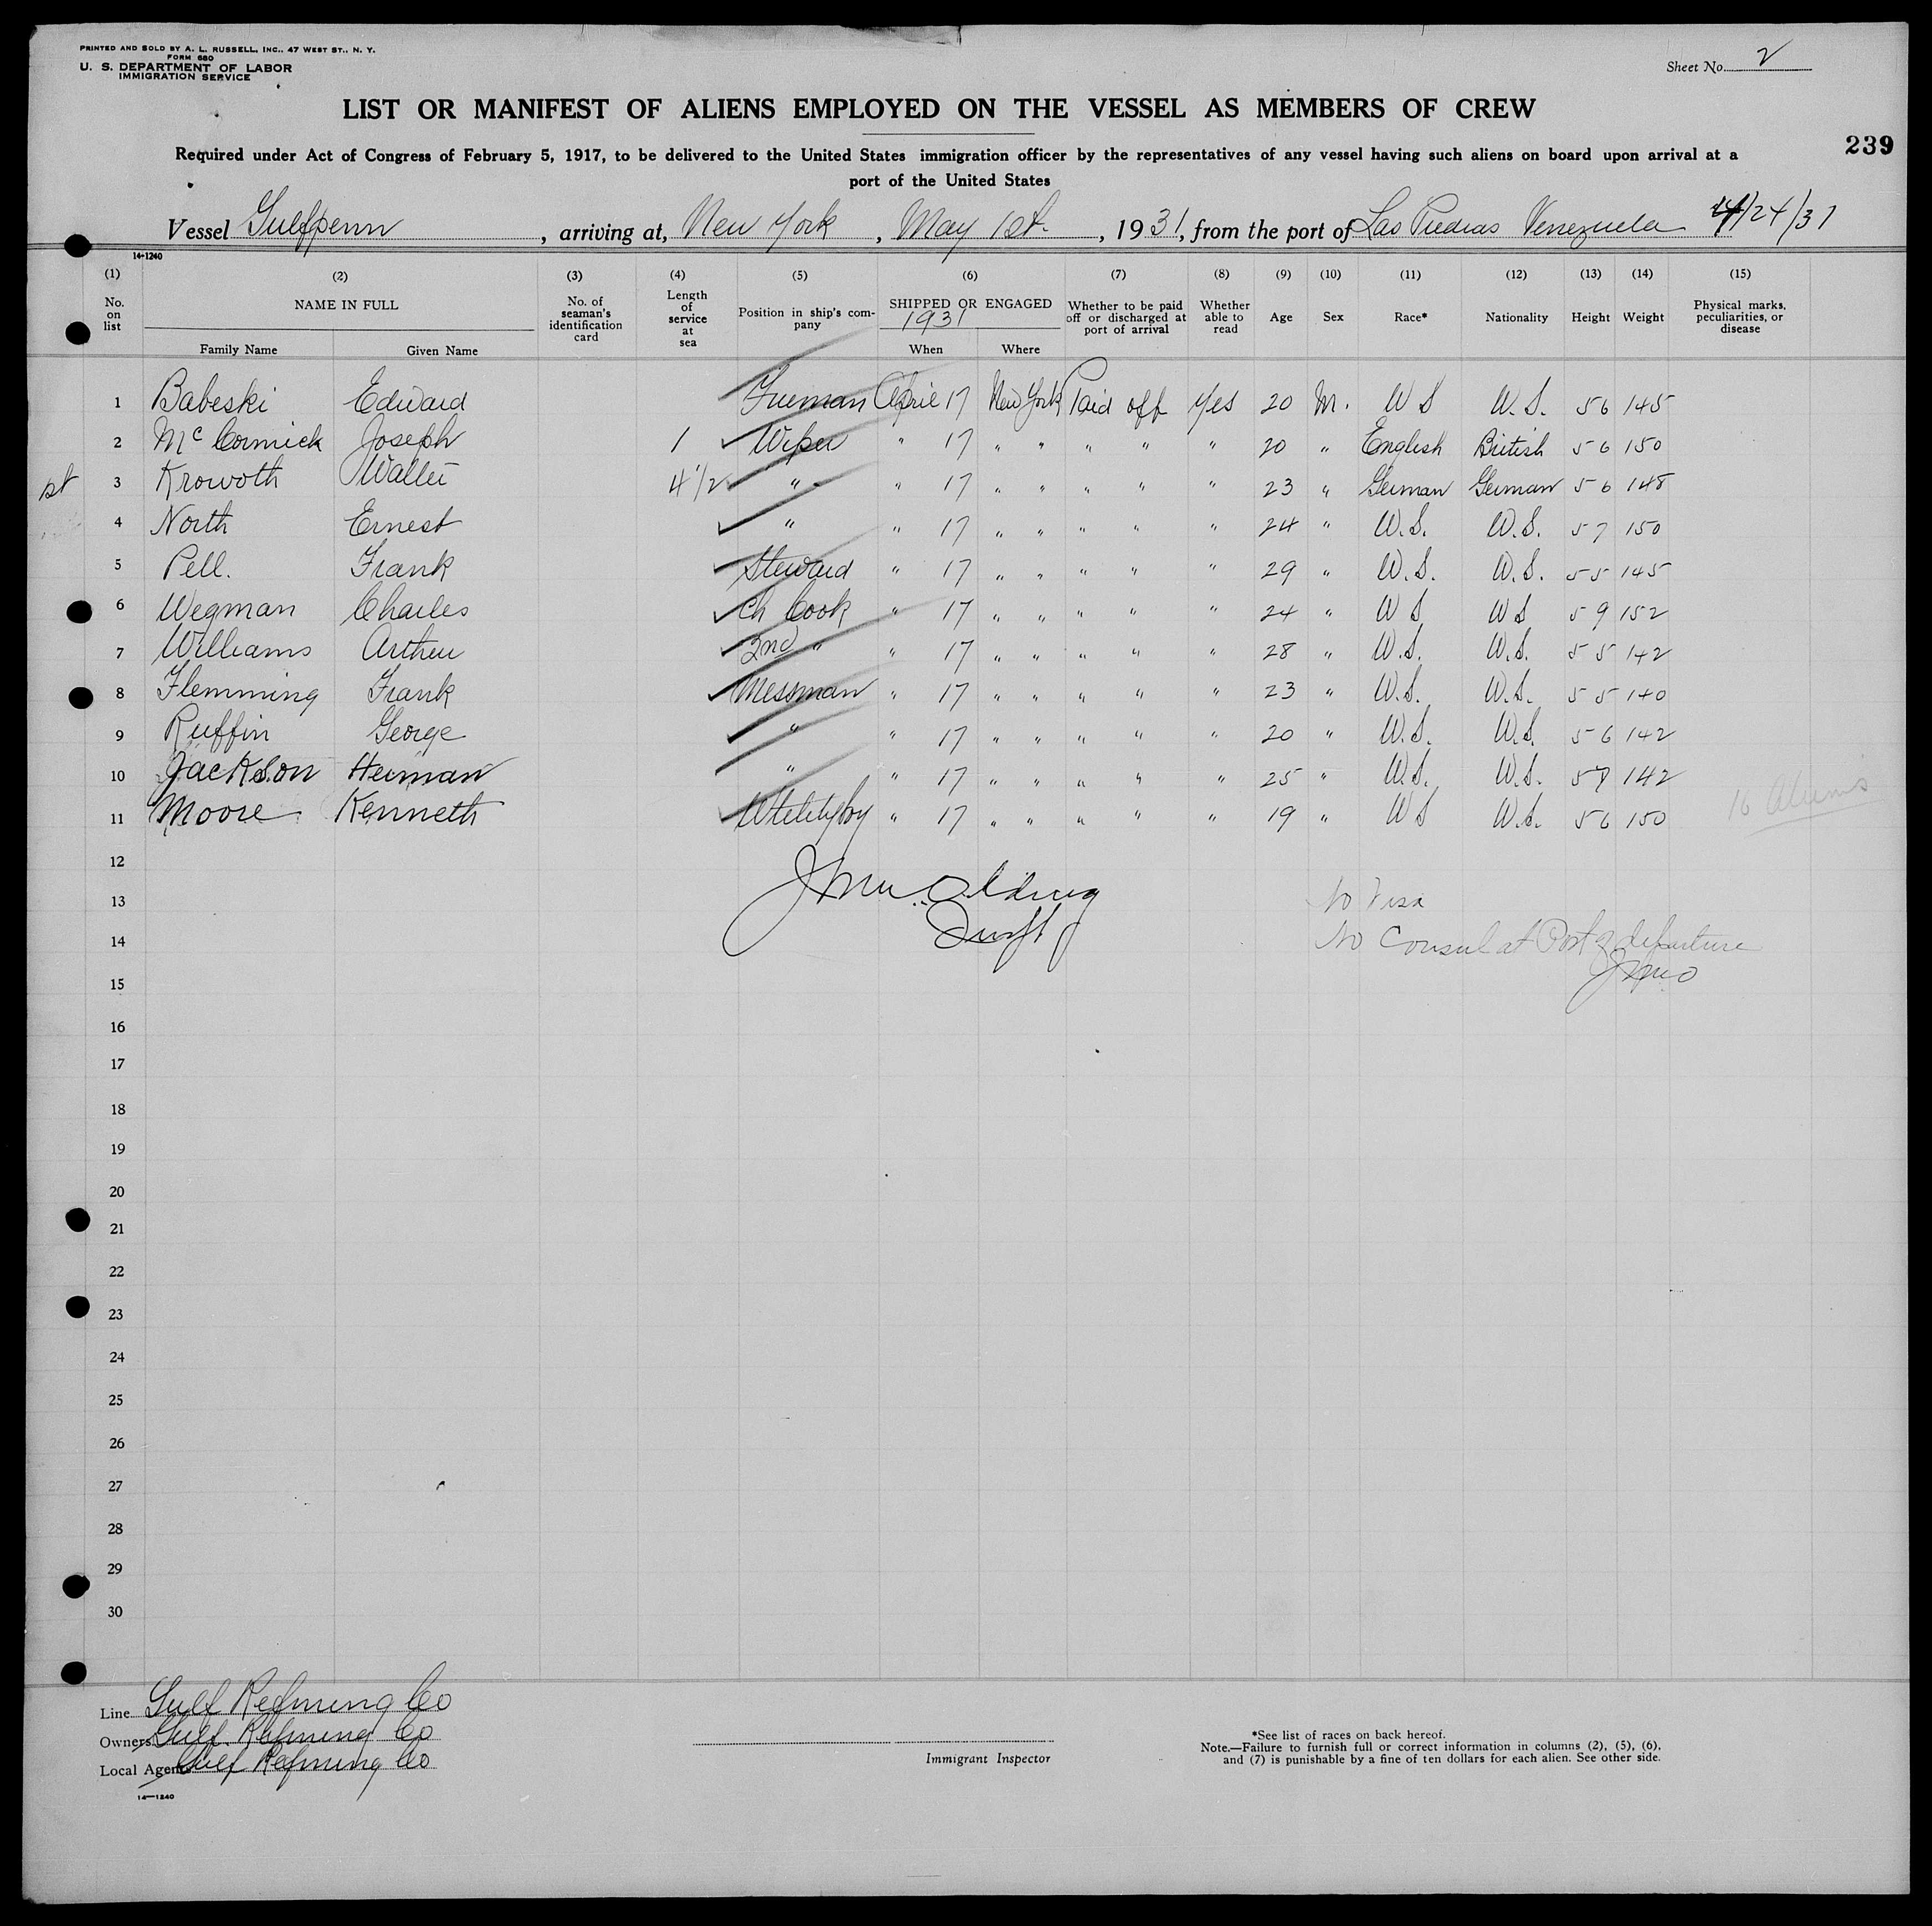 PRINTED AND SOLD BY A. L. RUSSELL, INC., 47 WEST ST., N. Y.
FORM 680
U. S. DEPARTMENT OF LABOR
IMMIGRATION SERVICE
Sheet No. 2
LIST OR MANIFEST OF ALIENS EMPLOYED ON THE VESSEL AS MEMBERS OF CREW
239
Required under Act of Congress of February 5, 1917, to be delivered to the United States immigration officer by the representatives of any vessel having such aliens on board upon arrival at a
port of the United States
Vessel Gulfpenn, arriving at, New York, May 1st., 1931, from the port of Las Piedras Venezuela 4/24/31
14-1240
(1) (2) (3) (4) (5) (6) (7) (8) (9) (10) (11) (12) (13) (14) (15)
No. on list NAME IN FULL No. of seaman's identification card Length of service at sea Position in ship's company SHIPPED OR ENGAGED 1931 Whether to be paid off or discharged at port of arrival Whether able to read Age Sex Race* Nationality Height Weight Physical marks, peculiarities, or disease
Family Name Given Name When Where
1 Babeski Edward Fireman April 17 New York Paid off Yes 20 M. U S U.S. 5 6 145
2 McCormick Joseph 1 Wiper " 17 " " " " " 20 " English British 5 6 150
st 3 Krowoth Walter 4 1/2 " " 17 " " " " " 23 " German German 5 6 148
4 North Ernest " " 17 " " " " " 24 " U.S. U.S. 5 7 150
5 Pell. Frank Steward " 17 " " " " " 29 " U.S. U.S. 5 5 145
6 Wegman Charles Ch Cook " 17 " " " " " 24 " U S U S 5 9 152
7 Williams Arthur 2nd " " 17 " " " " " 28 " U.S. U.S. 5 5 142
8 Flemming Frank Messman " 17 " " " " " 23 " U.S. U.S. 5 5 140
9 Ruffin George " " 17 " " " " " 20 " U.S. U.S. 5 6 142
10 Jackson Herman " " 17 " " " " " 25 " U.S. U.S. 5 142
11 Moore Kenneth Utilityboy " 17 " " " " " 19 " U S U.S. 5 6 150
16 Aliens
12
13 No Visa
14 No Consul at Port of departure
15 JMO
16
17
18
19
20
21
22
23
24
25
26
27
28
29
30
Line Gulf Refining Co
Owners Gulf Refining Co
Local Agents Gulf Refining Co
Immigrant Inspector
*See list of races on back hereof.
Note.—Failure to furnish full or correct information in columns (2), (5), (6),
and (7) is punishable by a fine of ten dollars for each alien. See other side.
14—1240